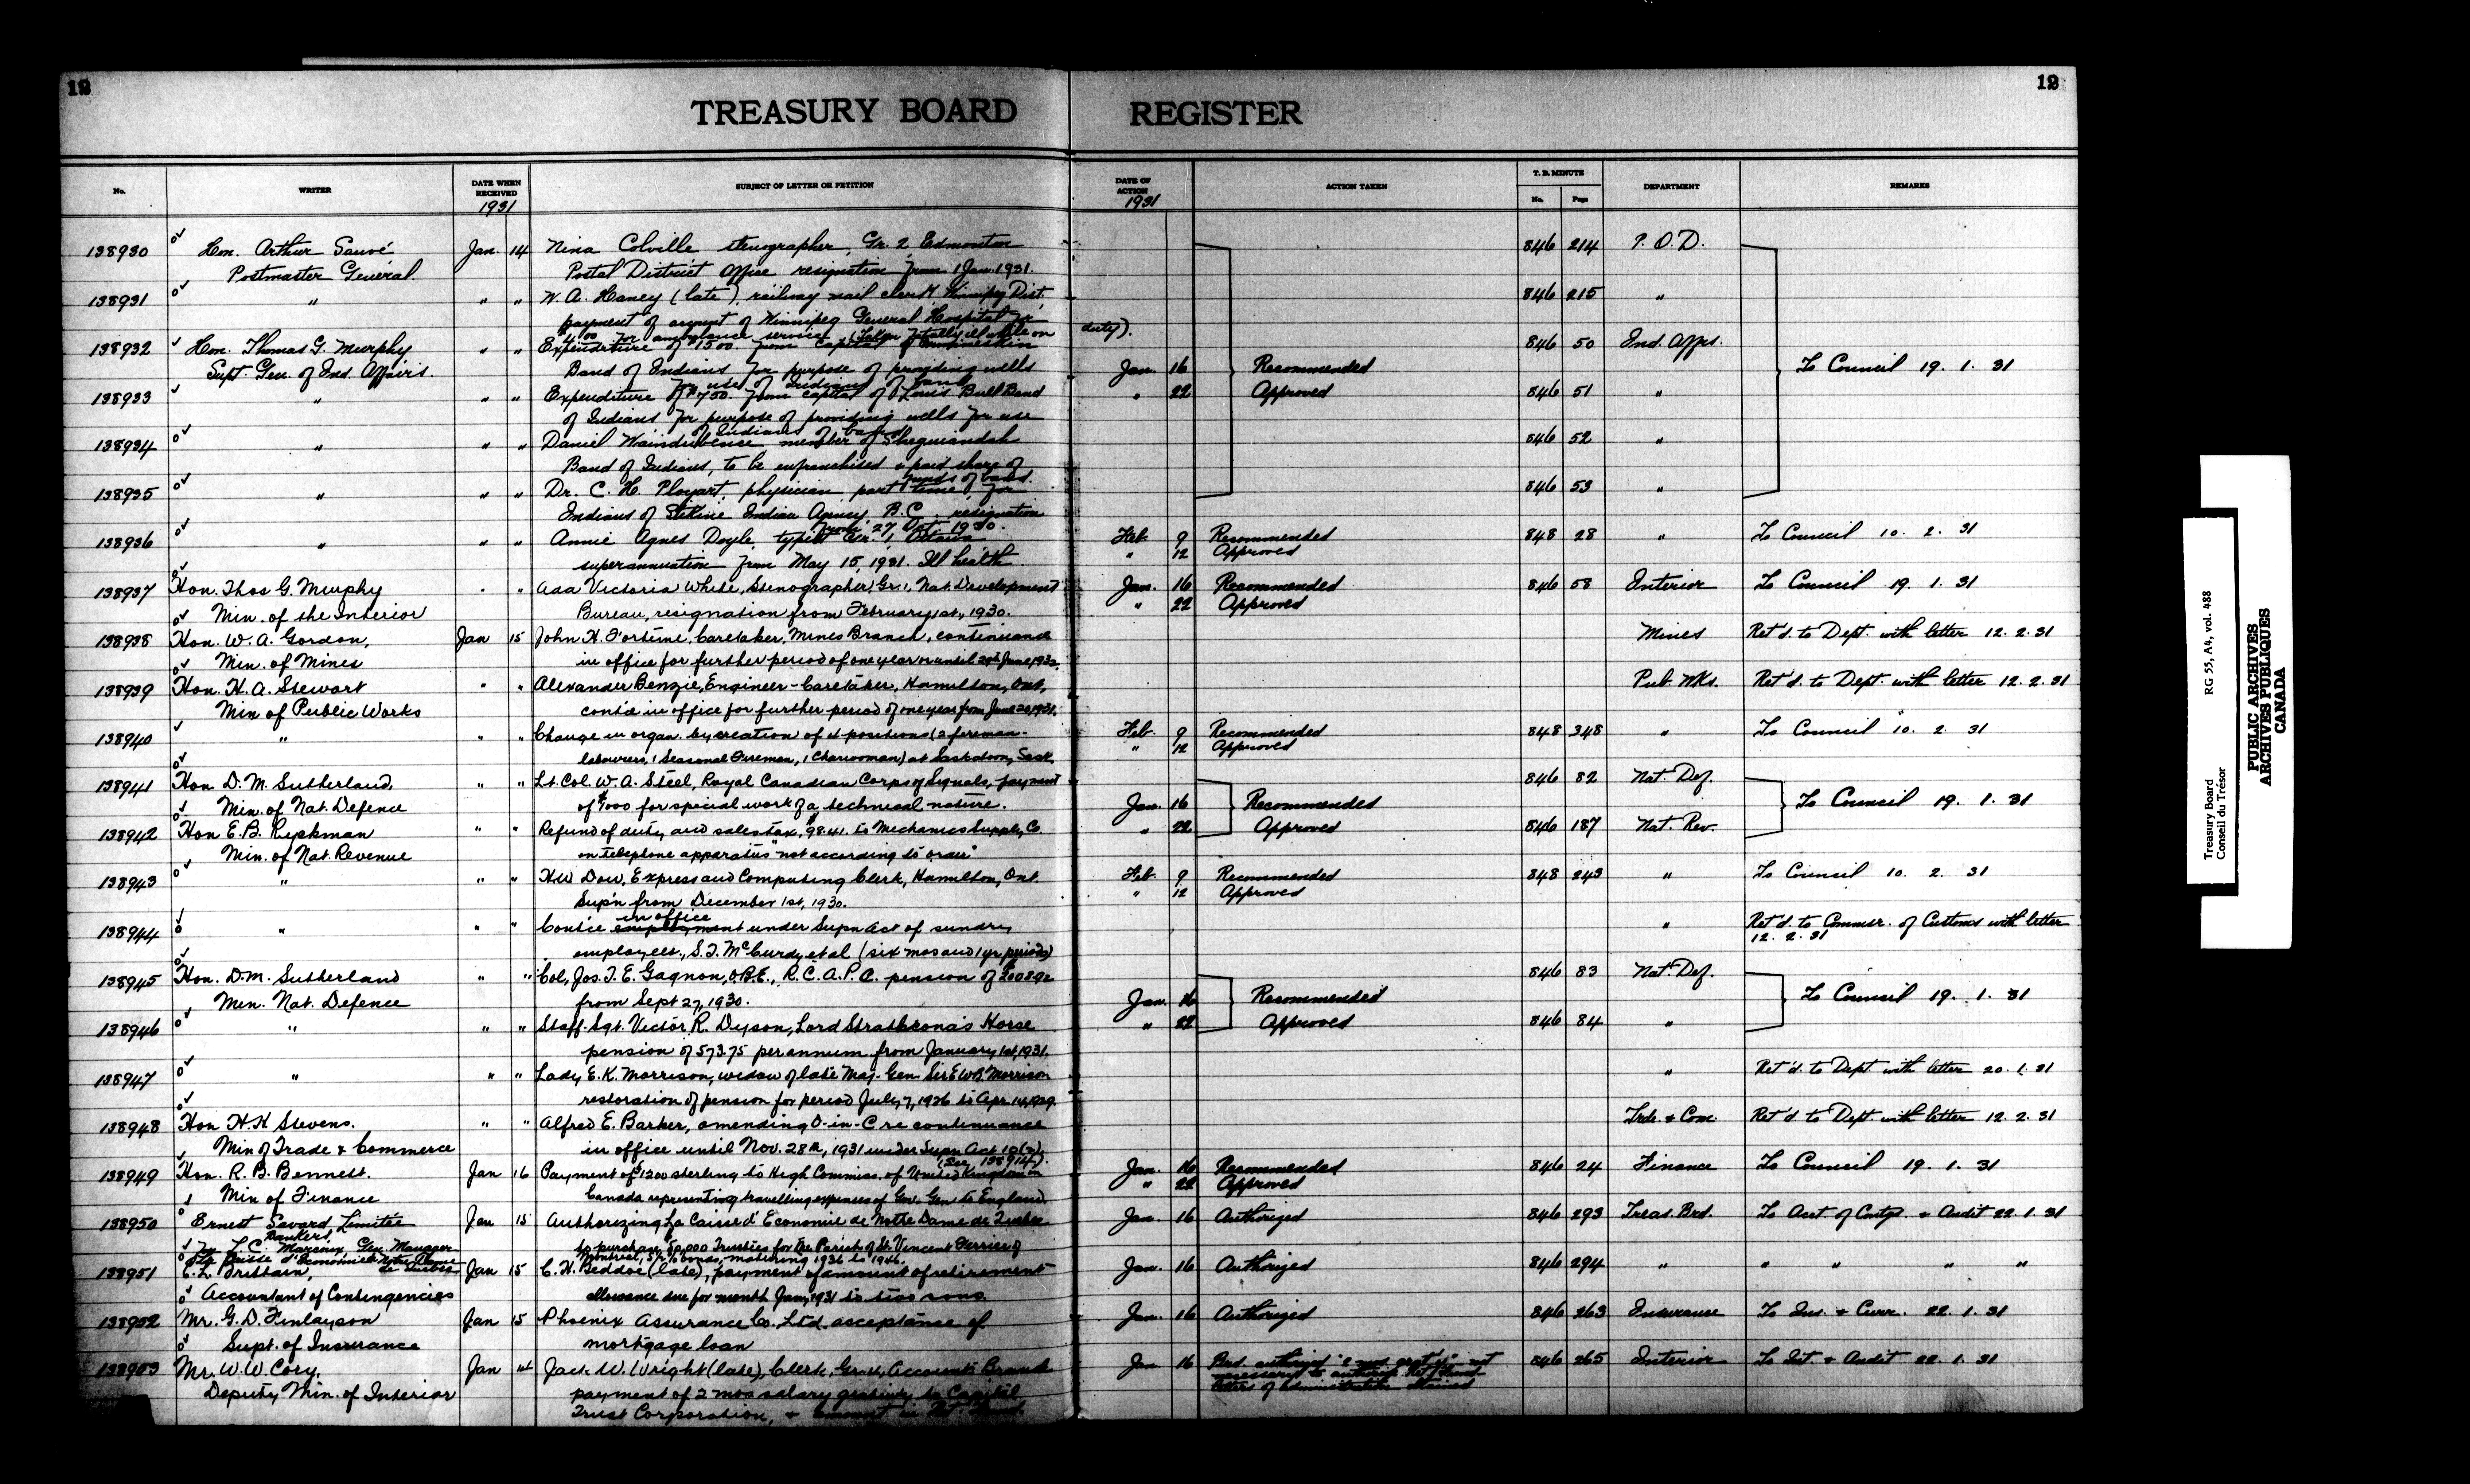 12
12
TREASURY BOARD REGISTER
No.
WRITER
DATE WHEN RECEIVED
1931
SUBJECT OF LETTER OR PETITION
DATE OF ACTION
1931
ACTION TAKEN
T. B. MINUTE
No.
Page
DEPARTMENT
REMARKS
138930 Hon. Arthur Sauvé Jan. 14 Nina Colville stenographer, Gr. 2, Edmonton 846 214 P.O.D.
Postmaster General Postal District Office resignation from 1 Jan. 1931.
138931 " " " W. A. Haney (late), railway mail clerk Winnipeg Dist. 846 215 "
payment of account of Winnipeg General Hospital for
$4.00 for ambulance service (taken fatally ill while on duty).
138932 Hon. Thomas G. Murphy " " Expenditure of $1500. from capital of 846 50 Ind. Affrs.
Supt. Gen. of Ind. Affairs. Band of Indians for purpose of providing wells Jan. 16 Recommended To Council 19. 1. 31
for use of Indians of band
138933 " " " Expenditure of $750. from capital of Louis Bull Band " 22 Approved 846 51 "
of Indians for purpose of providing wells for use
of Indians of band
138934 " " " Daniel member of Sheguiandah 846 52 "
Band of Indians, to be enfranchised & paid share of
funds of band.
138935 " " " Dr. C. H. Ployart, physician, part time, for 846 53 "
Indians of Stikine Indian Agency, B.C. resignation
from 27 Oct. 1930.
138936 " " " Annie Agnes Doyle, typist Gr. 1, Ottawa Feb. 9 Recommended 848 28 " To Council 10. 2. 31
superannuation from May 15, 1931. Ill health " 12 Approved
138937 Hon. Thos G. Murphy " " Ada Victoria White, Stenographer, Gr. 1, Nat. Development Jan. 16 Recommended 846 58 Interior To Council 19. 1. 31
Min. of the Interior Bureau, resignation from February 1st, 1930. " 22 Approved
138938 Hon. W. A. Gordon, Jan 15 John H. Fortune, Caretaker, Mines Branch, continuance Mines Ret'd. to Dept. with letter 12. 2. 31
Min. of Mines in office for further period of one year or until 29th June, 1932.
138939 Hon. H. A. Stewart " " Alexander Benzie, Engineer-Caretaker, Hamilton, Ont., Pub. Wks. Ret'd. to Dept. with letter 12. 2. 31
Min of Public Works cont'ce in office for further period of one year from June 20, 1931.
138940 " " " Change in organ. by creation of 4 positions (2 foreman- Feb. 9 Recommended 848 348 " To Council 10. 2. 31
labourers, 1 Seasonal Fireman, 1 Charwoman) at Saskatoon, Sask. " 12 Approved
138941 Hon D. M. Sutherland, " " Lt. Col. W. A. Steel, Royal Canadian Corps of Signals, payment 846 82 Nat. Def.
Min. of Nat. Defence of $1000 for special work of a technical nature. Jan. 16 Recommended To Council 19. 1. 31
138942 Hon E. B. Ryckman " " Refund of duty and sales tax, $98.41. to Mechanics Supply Co. " 22 Approved 846 187 Nat. Rev.
Min. of Nat. Revenue on telephone apparatus "not according to order"
138943 " " " H W Dow, Express and Computing Clerk, Hamilton, Ont. Feb. 9 Recommended 848 243 " To Council 10. 2. 31
Sup'n from December 1st, 1930. " 12 Approved
in office
138944 " " " Cont'ce employment under Supn Act of sundry " Ret'd. to Commsr. of Customs with letter
12. 2. 31
employees, S. T. McCurdy et al (six mos and 1 yr. periods)
138945 Hon. D. M. Sutherland " " Col. Jos. T. E. Gagnon, O.B.E., R.C.A.P.C. pension of 846 83 Nat. Def.
Min. Nat. Defence from Sept 27, 1930. Jan. 16 Recommended To Council 19. 1. 31
138946 " " " Staff-Sgt. Victor R. Dyson, Lord Strathcona's Horse " 22 Approved 846 84 "
pension of 573.75 per annum from January 1st, 1931.
138947 " " " Lady E. K. Morrison, widow of late Maj-Gen Sir E W B Morrison " Ret'd. to Dept. with letter 20. 1. 31
restoration of pension for period July 7, 1926 to Apr. 14, 1929.
138948 Hon H. H Stevens. " " Alfred E. Barker, amending O-in-C re continuance Trde. & Com Ret'd to Dept with letter 12. 2. 31
Min of Trade & Commerce in office until Nov. 28th, 1931 under Supn Act 10(2)
(See 138914).
138949 Hon. R. B. Bennett. Jan 16 Payment of $1200 sterling to High Commiss. of United Kingdom in Jan. 16 Recommended 846 24 Finance To Council 19. 1. 31
Min of Finance Canada representing travelling expenses of Gov. Gen. to England " 22 Approved
138950 Ernest Savard Limitée Jan 15 Authorizing La Caisse d'Economie de Notre Dame de Quebec Jan. 16 Authorized 846 293 Treas. Brd. To Acct. of Contgs. & Audit 22. 1. 31
Bankers,
Gen. Manager to purchase 50,000 Trustees for the Parish of St. Vincent Ferrier of
La Caisse d'Economie Notre Dame de Quebec Montreal, 5% bonds, maturing 1936 to 1946.
138951 C. L. Brittain, Jan 15 C. H. Beddoe (late), payment of amount of retirement Jan. 16 Authorized 846 294 " " " " "
Accountant of Contingencies allowance due for month Jan, 1931 to two sons.
138952 Mr. G. D. Finlayson Jan 15 Phoenix Assurance Co. Ltd. acceptance of Jan. 16 Authorized 846 263 Insurance To Ins. & Curr. 22. 1. 31
Supt. of Insurance mortgage loan
138953 Mr. W. W. Cory, Jan 14 Jack W. Wright (late), Clerk, Gr. 4, Accounts Branch Jan 16 Brd. authorized "2 mos gratuity" not 846 265 Interior To Int. & Audit 22. 1. 31
Deputy Min. of Interior payment of 2 mos salary gratuity to Capital necessary to authorize
Trust Corporation, & letters of administration obtained
Treasury Board RG 55, A4, vol. 488
Conseil du Trésor
PUBLIC ARCHIVES
ARCHIVES PUBLIQUES
CANADA